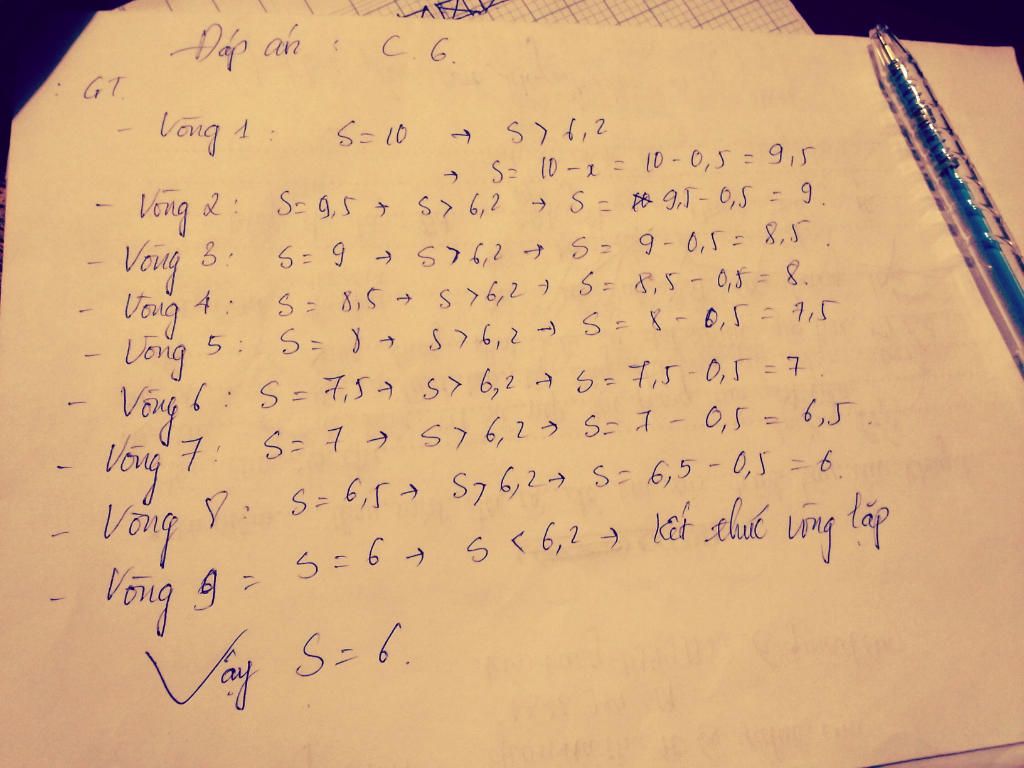 Đáp án : C. 6.
: GT.
- Vòng 1 : S = 10 → S > 6,2
→ S = 10 - x = 10 - 0,5 = 9,5
- Vòng 2 : S = 9,5 → S > 6,2 → S = 9,5 - 0,5 = 9.
- Vòng 3 : S = 9 → S > 6,2 → S = 9 - 0,5 = 8,5.
- Vòng 4 : S = 8,5 → S > 6,2 → S = 8,5 - 0,5 = 8.
- Vòng 5 : S = 8 → S > 6,2 → S = 8 - 0,5 = 7,5
- Vòng 6 : S = 7,5 → S > 6,2 → S = 7,5 - 0,5 = 7.
- Vòng 7 : S = 7 → S > 6,2 → S = 7 - 0,5 = 6,5.
- Vòng 8 : S = 6,5 → S > 6,2 → S = 6,5 - 0,5 = 6.
- Vòng 9 = S = 6 → S < 6,2 → Kết thúc vòng lặp
Vậy S = 6.